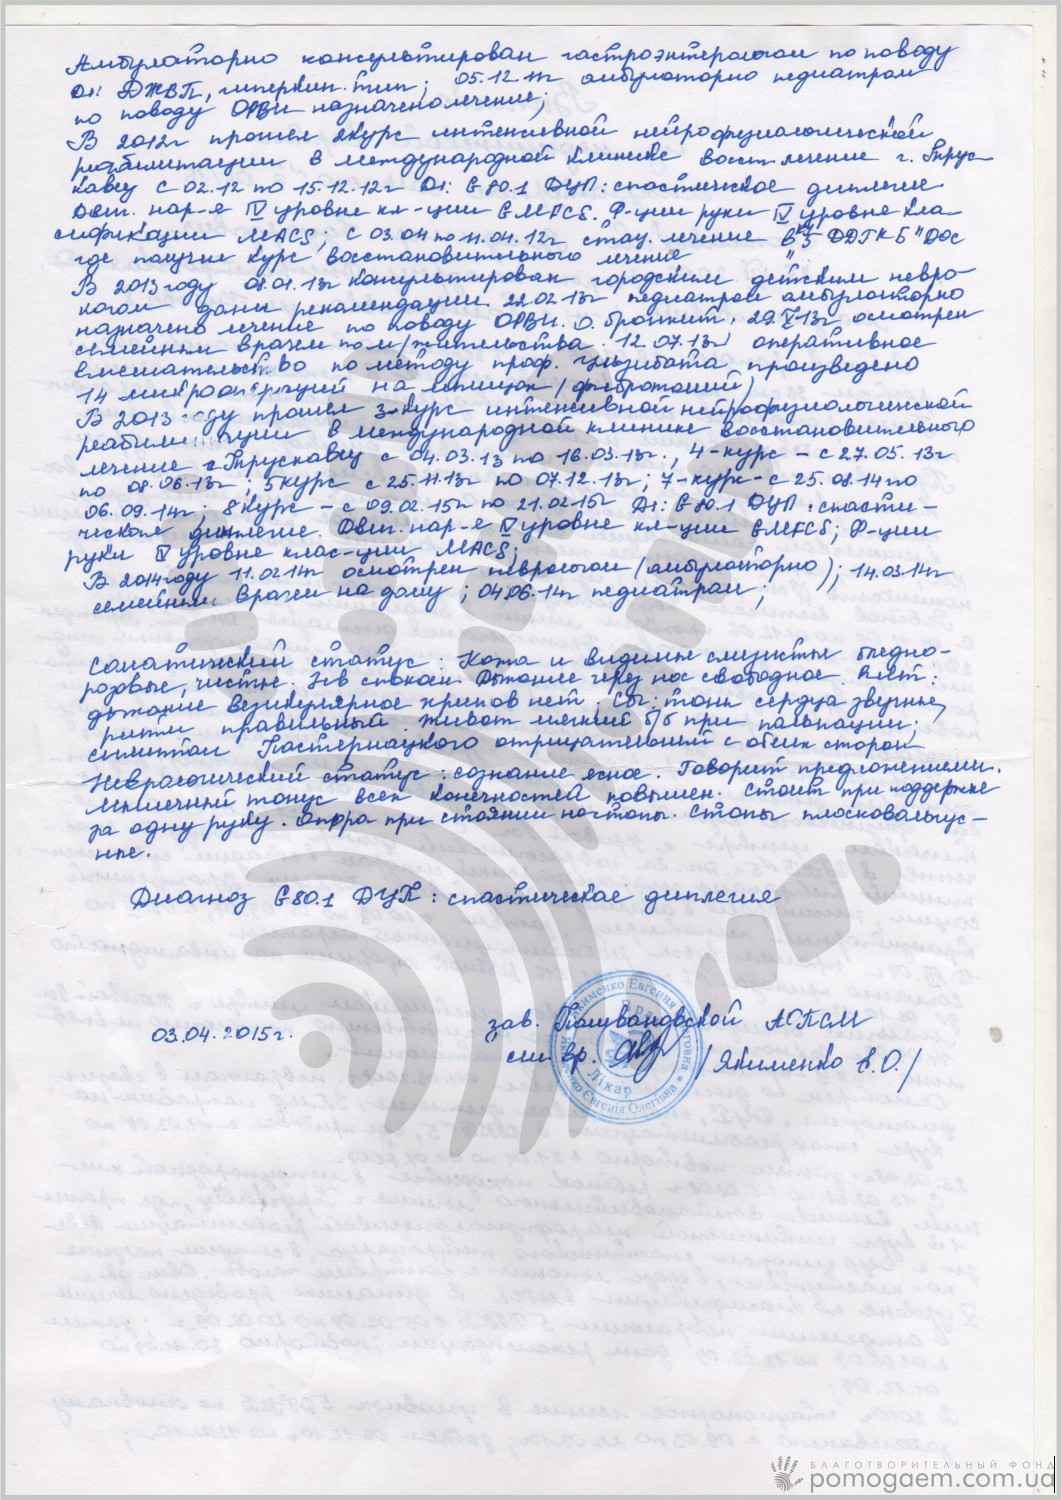 Амбулаторно консультирован гастроэнтерологом по поводу
Ds: ДЖВП, гиперкин. тип; 05.12.11г амбулаторно педиатром
по поводу ОРВИ назначено лечение;
В 2012г прошел 2курс интенсивной нейрофизиологической
реабилитации в международной клинике восст. лечение г. Трус-
кавец с 02.12 по 15.12.12г Ds: G 80.1 ДЦП: спастическое диплегие
Двиг. нар-е IV уровне кл-ции GMFCS. Ф-ции руки IV уровне кла-
сификации MACS; с 03.04 по 11.04.12г стац. лечение в 5 ДДГКБ "ДОС
где получил курс восстановительного лечение
В 2013 году 08.01.13г консультирован городским детским невро-
логом даны рекомендации. 22.02.13г педиатром амбулаторно
назначено лечение по поводу ОРВИ. о. бронхит. 29.V.13г осмотрен
семейным врачем по м/жительства. 12.07.13г оперативное
вмешательство по методу проф. Ульзибата, произведено
14 микроопераций на мышцах (фибротомий)
В 2013 году прошел 3-курс интенсивной нейрофизиологической
реабилитации в международной клинике восстановительного
лечение г. Трускавец с 04.03.13 по 16.03.13г., 4-курс - с 27.05.13г
по 08.06.13г; 5курс с 25.11.13г по 07.12.13г; 7-курс - с 25.08.14 по
06.09.14г; 8курс - с 09.02.15г по 21.02.15г Ds: G 80.1 ДЦП: спасти-
ческое диплегие. Двиг. нар-е IV уровне кл-ции GMFCS; Ф-ции
руки IV уровне клас-ции MACS;
В 2014году 11.02.14г осмотрен неврологом (амбулаторно); 14.03.14г
семейным врачем на дому; 04.06.14г педиатром;
Соматический статус: Кожа и видимые слизистые бледно-
розовые, чистые. Зев спокоен. Дыхание через нос свободное.
дыхание везикулярное хрипов нет. тоны сердца звучные,
ритм правильный. живот мягкий б/б при пальпации;
симптом Пастернацкого отрицательный с обеих сторон
Неврологический статус: сознание ясное. Говорит предложениями.
Мышечный тонус всех конечностей повышен. Стоит при поддержке
за одну руку. Опора при стоянии на стопы. Стопы плосковальгус-
ные.
Диагноз G 80.1 ДЦП: спастическое диплегия
03.04.2015г.
зав. АОПСМ
сем вр. /Якименко Е.О./
Якименко Євгенія Олегівна
Лікар
БЛАГОТВОРИТЕЛЬНЫЙ ФОНД
pomogaem.com.ua